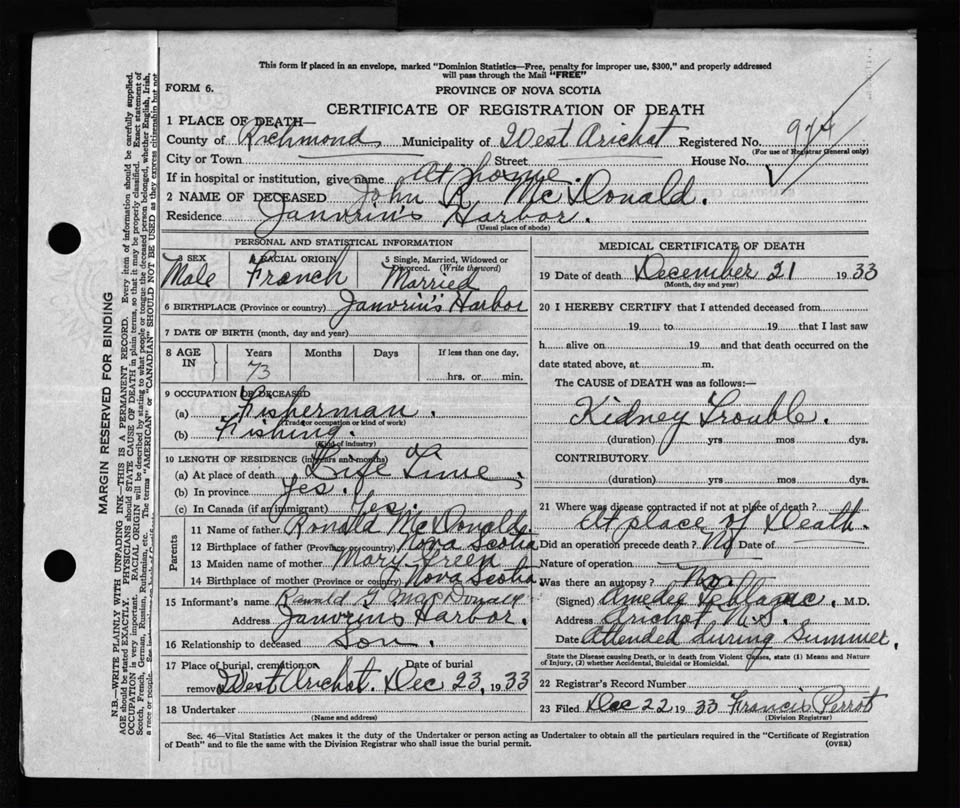 This form if placed in an envelope, marked "Dominion Statistics—Free, penalty for improper use, $300," and properly addressed
will pass through the Mail "FREE"
FORM 6.
PROVINCE OF NOVA SCOTIA
CERTIFICATE OF REGISTRATION OF DEATH
1 PLACE OF DEATH—
County of Richmond Municipality of West Arichat Registered No. 974
(For use of Registrar General only)
City or Town Street House No.
If in hospital or institution, give name At home.
2 NAME OF DECEASED John R. McDonald.
Residence Janvrin's Harbor.
(Usual place of abode)
PERSONAL AND STATISTICAL INFORMATION
3 SEX 4 RACIAL ORIGIN 5 Single, Married, Widowed or Divorced. (Write the word)
Male French Married
6 BIRTHPLACE (Province or country) Janvrin's Harbor
7 DATE OF BIRTH (month, day and year)
8 AGE IN Years Months Days If less than one day.
73 hrs. or min.
9 OCCUPATION OF DECEASED
(a) Fisherman.
(Trade or occupation or kind of work)
(b) Fishing.
(Kind of industry)
10 LENGTH OF RESIDENCE (in years and months)
(a) At place of death Life Time.
(b) In province Yes.
(c) In Canada (if an immigrant) Yes.
Parents
11 Name of father Ronald McDonald
12 Birthplace of father (Province or country) Nova Scotia
13 Maiden name of mother Mary Green
14 Birthplace of mother (Province or country) Nova Scotia
15 Informant's name Ronald G MacDonald
Address Janvrins Harbor.
16 Relationship to deceased Son.
17 Place of burial, cremation or removal West Arichat. Date of burial Dec 23, 1933
18 Undertaker
(Name and address)
MEDICAL CERTIFICATE OF DEATH
19 Date of death December 21 1933
(Month, day and year)
20 I HEREBY CERTIFY that I attended deceased from
19 to 19 that I last saw
h alive on 19 and that death occurred on the
date stated above, at m.
The CAUSE OF DEATH was as follows:—
Kidney Trouble.
(duration) yrs mos dys.
CONTRIBUTORY
(duration) yrs. mos. dys.
21 Where was disease contracted if not at place of death ?
At place of Death.
Did an operation precede death ? No Date of
Nature of operation
Was there an autopsy ? No.
(Signed) Amedee Leblanc. M.D.
Address Arichat N.S.
Date Attended during Summer.
State the Disease causing Death, or in death from Violent Causes, state (1) Means and Nature
of Injury, (2) whether Accidental, Suicidal or Homicidal.
22 Registrar's Record Number
23 Filed Dec 22 1933 Francis Perrot
(Division Registrar)
Sec. 46—Vital Statistics Act makes it the duty of the Undertaker or person acting as Undertaker to obtain all the particulars required in the "Certificate of Registration
of Death" and to file the same with the Division Registrar who shall issue the burial permit.
(OVER)
MARGIN RESERVED FOR BINDING
N.B.—WRITE PLAINLY WITH UNFADING INK—THIS IS A PERMANENT RECORD. Every item of information should be carefully supplied.
AGE should be stated EXACTLY. PHYSICIANS should STATE CAUSE OF DEATH in plain terms, so that it may be properly classified. Exact statement of
OCCUPATION is very important. RACIAL ORIGIN will be described by stating to what people or tongue the deceased person belonged, whether English, Irish,
Scotch, French, German, Russian, Ruthenian, etc. The terms "AMERICAN" or "CANADIAN" SHOULD NOT BE USED as they express citizenship but not
a race or people.